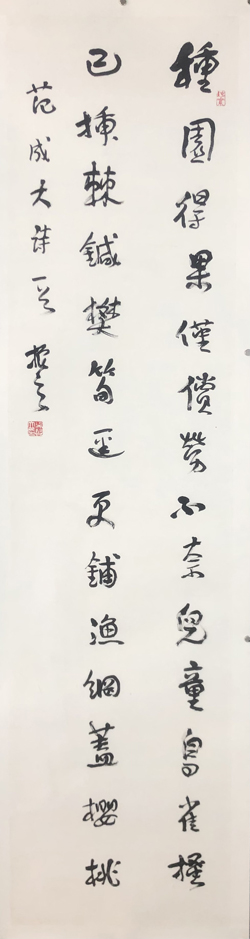 種園得果僅償勞不奈兒童鳥雀搔
已揷棘鍼樊筍逕更鋪漁網蓋櫻桃
范成大詩一首